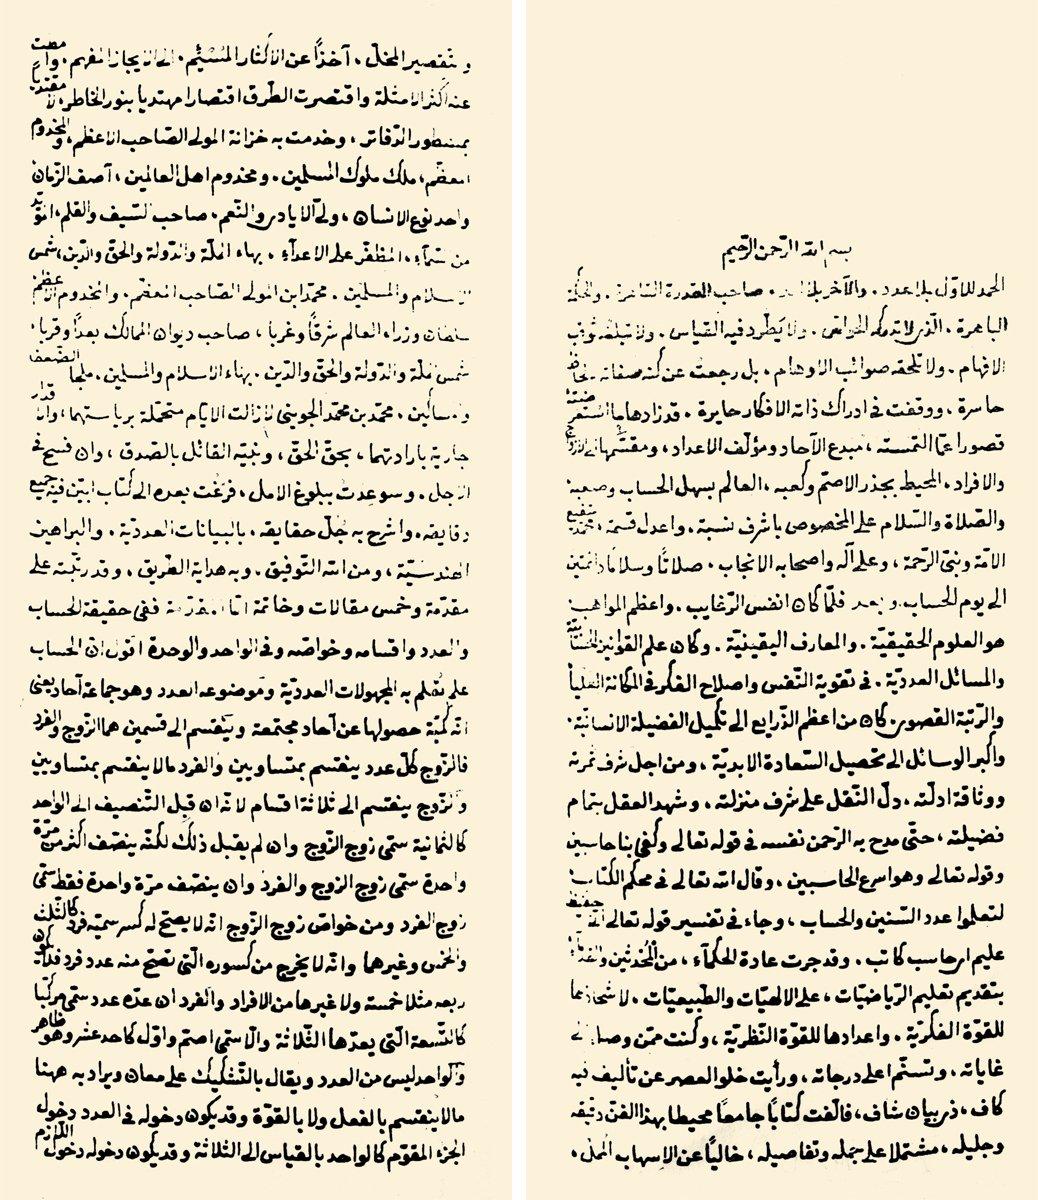 بسم الله الرحمن الرحيم
الحمد للاوّل بلا عدد . والآخر بلا امد . صاحب القدرة القاهرة . والحكمة
الباهرة . الّذى لا تدركه الحواسّ . ولا يطّرد فيه القياس . ولا تبلغه ثوقب
الافهام . ولا تلحقه صوائب الاوهام . بل رجعت عن كنه صفاته لحاظ
حاسرة . ووقفت فى ادراك ذاته الافكار حايرة . قد زادها
قصورا عمّا التمسته ، مبدع الآحاد ومؤلّف الاعداد ، ومقسّمها الى الازواج
والافراد . المحيط بجذر الاصمّ وكعبه ، العالم بسهل الحساب وصعبه
والصّلاة والسّلام على المخصوص باشرف نسبة . واعدل قسمة ، محمد شفيع
الامّة ونبىّ الرّحمة ، وعلى آله واصحابه الانجاب . صلاتًا وسلامًا دائمين
الى يوم الحساب . وبعد فلمّا كان انفس الرّغايب . واعظم المواهب
هو العلوم الحقيقيّة . والمعارف اليقينيّة . وكان علم القوانين الحسابيّة
والمسائل العدديّة . فى تقوية النّفس واصلاح الفكر فى المكانة العليا
والرّتبة القصوى . كان من اعظم الذّرايع الى تكميل الفضيلة الانسانيّة .
واكبر الوسائل الى تحصيل السّعادة الابديّة ، ومن اجل شرف ثمرته
ووثاقة ادلّته . دلّ النّقل على شرف منزلته . وشهد العقل بتمام
فضيلته ، حتّى مدح به الرّحمن نفسه فى قوله تعالى وكفى بنا حاسبين
وقوله تعالى وهو اسرع الحاسبين . وقال الله تعالى فى محكم الكتاب
لتعلموا عدد السّنين والحساب ، وجاء فى تفسير قوله تعالى انى حفيظ
عليم اى حاسب كاتب . وقد جرت عادة الحكمآء ، من المحدثين والقدمآء
بتقديم تعليم الرّياضيّات ، على الالهيّات والطّبيعيّات . لاشحاذها
للقوّة الفكريّة . واعدادها للقوّة النّظريّة ، وكنت ممّن وصل الى
غاياته . وتسنّم اعلى درجاته ، ورأيت خلو العصر عن تأليف فيه
كاف ، ذى بيان شاف ، فالّفت كتابًا جامعًا محيطا بهذا الفنّ دقيقه
وجليله ، مشتملا على جمله وتفاصيله ، خاليًا عن الاسهاب المملّ ،
وتقصير المخلّ . آخذًا عن الاكثار المسئم . الى الايجاز المفهم . وامضت
عنه اكثر الامثلة واقتصرت الطّرق اقتصارا مهتديا بنور الخاطر ، لا مقتديًا
بمسطور الدّفاتر . وخدمت به خزانة المولى الصّاحب الاعظم ، والمخدوم
المعظّم ، ملك ملوك المسلمين . ومخدوم اهل العالمين ، آصف الزّمان
واحد نوع الانسان ، ولىّ الايادى والنّعم . صاحب السّيف والقلم ، المؤيّد
من السّمآء ، المظفّر على الاعدآء . بهاء الملّة والدّولة والحقّ والدّين ، شمس
الاسلام والمسلمين . محمّد ابن المولى الصّاحب المعظم . والمخدوم الاعظم
سلطان وزراء العالم شرقًا وغربا ، صاحب ديوان الممالك بعدًا وقربا ،
شمس الملّة والدّولة والحقّ والدّين . بهاء الاسلام والمسلمين . ملجا الضّعفا
والمساكين . محمّد بن محمّد الجوينى لازالت الايّام متجمّلة برياستهما ، والاقدار
جارية بارادتهما ، بحقّ الحقّ ، ونبيّه القائل بالصّدق ، وان فسح فى
الاجل . وسوعدت ببلوغ الامل ، فرغت بعده الى كتاب ابيّن فيه جميع
دقايقه . واشرح به جلّ حقايقه . بالبيانات العدديّة . والبراهين
الهندسيّة ، ومن الله التّوفيق . وبه هداية الطّريق . وقد رتّبته على
مقدّمة وخمس مقالات وخاتمة امّا المقدّمة ففى حقيقة الحساب
والعدد واقسامه وخواصّه وفى الواحد والوحدة اقول انّ الحساب
علم تعلم به المجهولات العدديّة وموضوعه العدد وهو جماعة آحاد يعنى
انّه كمّيّة حصولها عن آحاد مجتمعة وينقسم الى قسمين هما الزّوج والفرد
فالزّوج كلّ عدد ينقسم بمتساويين والفرد مالا ينقسم بمتساويين
والزّوج ينقسم الى ثلاثة اقسام لانّه ان قبل التّنصيف الى الواحد
كالثمانية سمّى زوج الزّوج وان لم يقبل ذلك لكنّه ينصّف اكثر من مرّة
واحدة سمّى زوج الزوج والفرد وان ينصّف مرّة واحدة فقط سمّى
زوج الفرد ومن خواصّ زوج الزّوج انّه لا يصحّ له كسر سميّه فرد كالثّلث
والخمس وغيرهما وانّه لا يخرج من كسوره الّتى تصحّ منه عدد فرد فلا يكون
ربعه مثلا خمسة ولا غيرها من الافراد والفرد ان عدّه عدد سمّى مركّبا
كالتّسعة الّتى يعدّها الثّلاثة والّا سمى اصمّ واوّل كاحد عشر وهو ظاهر
والواحد ليس من العدد ويقال بالتّشكيك على معان ويراد به ههنا
مالا ينقسم بالفعل ولا بالقوّة وقد يكون دخوله فى العدد دخول
الجزء المقوّم كالواحد بالقياس الى الثلاثة وقد يكون دخوله دخول اللّازم